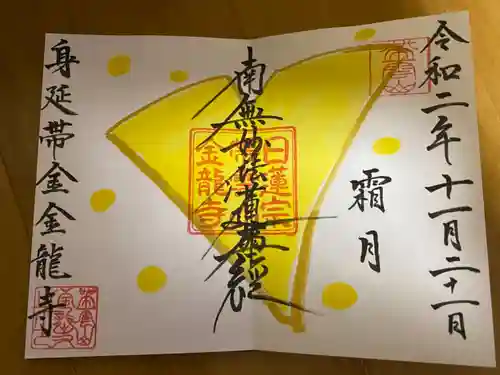 令和二年十一月二十一日
霜月
南無妙法蓮華経
日蓮宗
金龍寺
身延帯金金龍寺